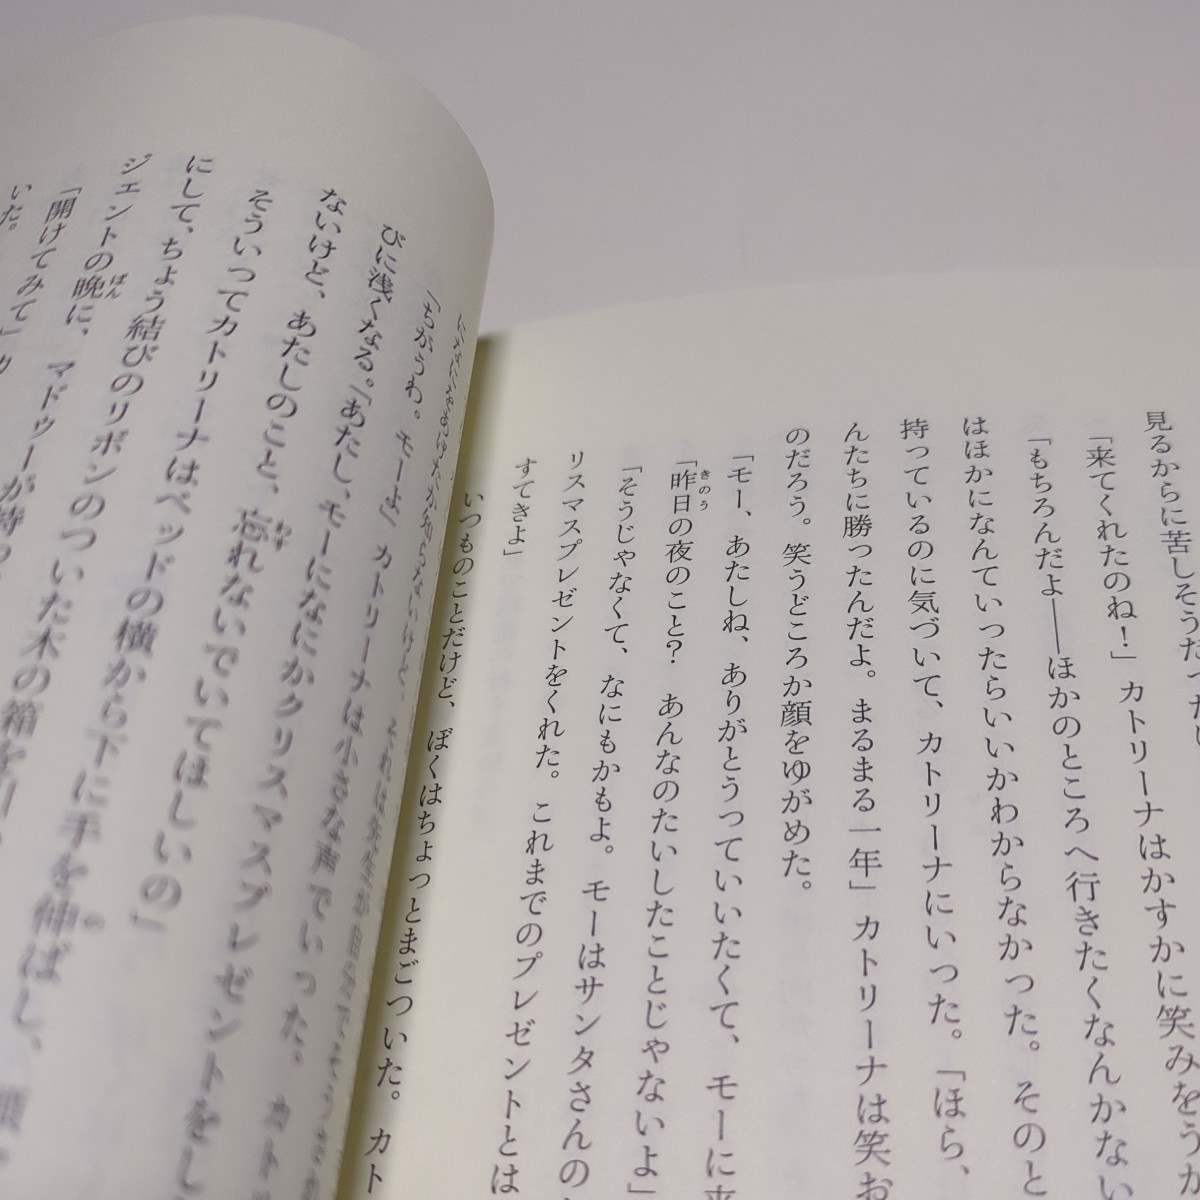 見るからに苦しそうだった
「来てくれたのね！」カトリーナはかすかに笑みをうか
「もちろんだよ――ほかのところへ行きたくなんかない
はほかになんていったらいいかわからなかった。そのと
持っているのに気づいて、カトリーナにいった。「ほら、
んたちに勝ったんだよ。まるまる一年」カトリーナは笑お
のだろう。笑うどころか顔をゆがめた。
「モー、あたしね、ありがとうっていいたくて、モーに来
「昨日の夜のこと？　あんなのたいしたことじゃないよ」
きのう
「そうじゃなくて、なにもかもよ。モーはサンタさんの
リスマスプレゼントをくれた。これまでのプレゼントとは
すてきよ」
いつものことだけど、ぼくはちょっとまごついた。カト
「ちがうわ。モーよ」カトリーナは小さな声でいった。カト
びに浅くなる。「あたし、モーになにかクリスマスプレゼントをし
ないけど、あたしのこと、忘れないでいてほしいの」
わす
そういってカトリーナはベッドの横から下に手を伸ばし、
の
にして、ちょう結びのリボンのついた木の箱を
ジェントの晩に、マドゥーが持っ
ばん
「開けてみて」カ
いた。